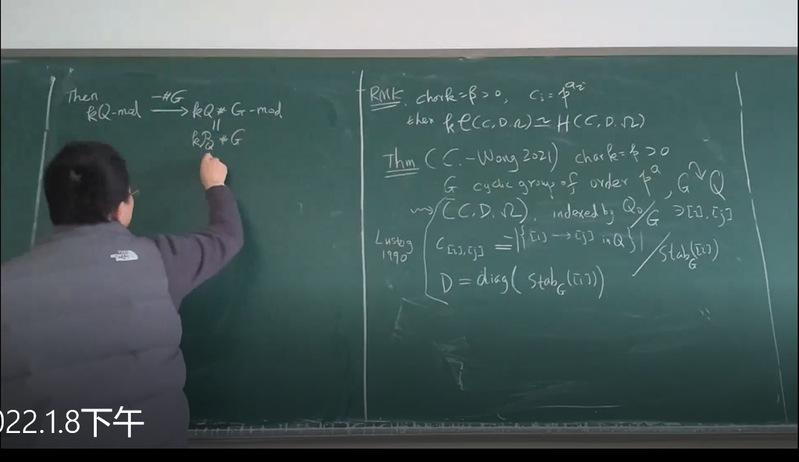 Then
kQ-mod —#G→ kQ * G-mod
||
kP_Q * G
RMK. chark=p>0, c_i = p^{a_i}
then kC(C,D,Ω) ≃ H(C,D,Ω)
Thm (C.-Wang 2021) chark=p>0
G cyclic group of order p^a, G↷Q
⇝ (C,D,Ω), indexed by Q_0/G ∋ [i],[j]
Lusztig
1990
C_{[i],[j]} = -|{[i] → [j] in Q}| / Stab_G([i])
D = diag( Stab_G([i]))
022.1.8下午